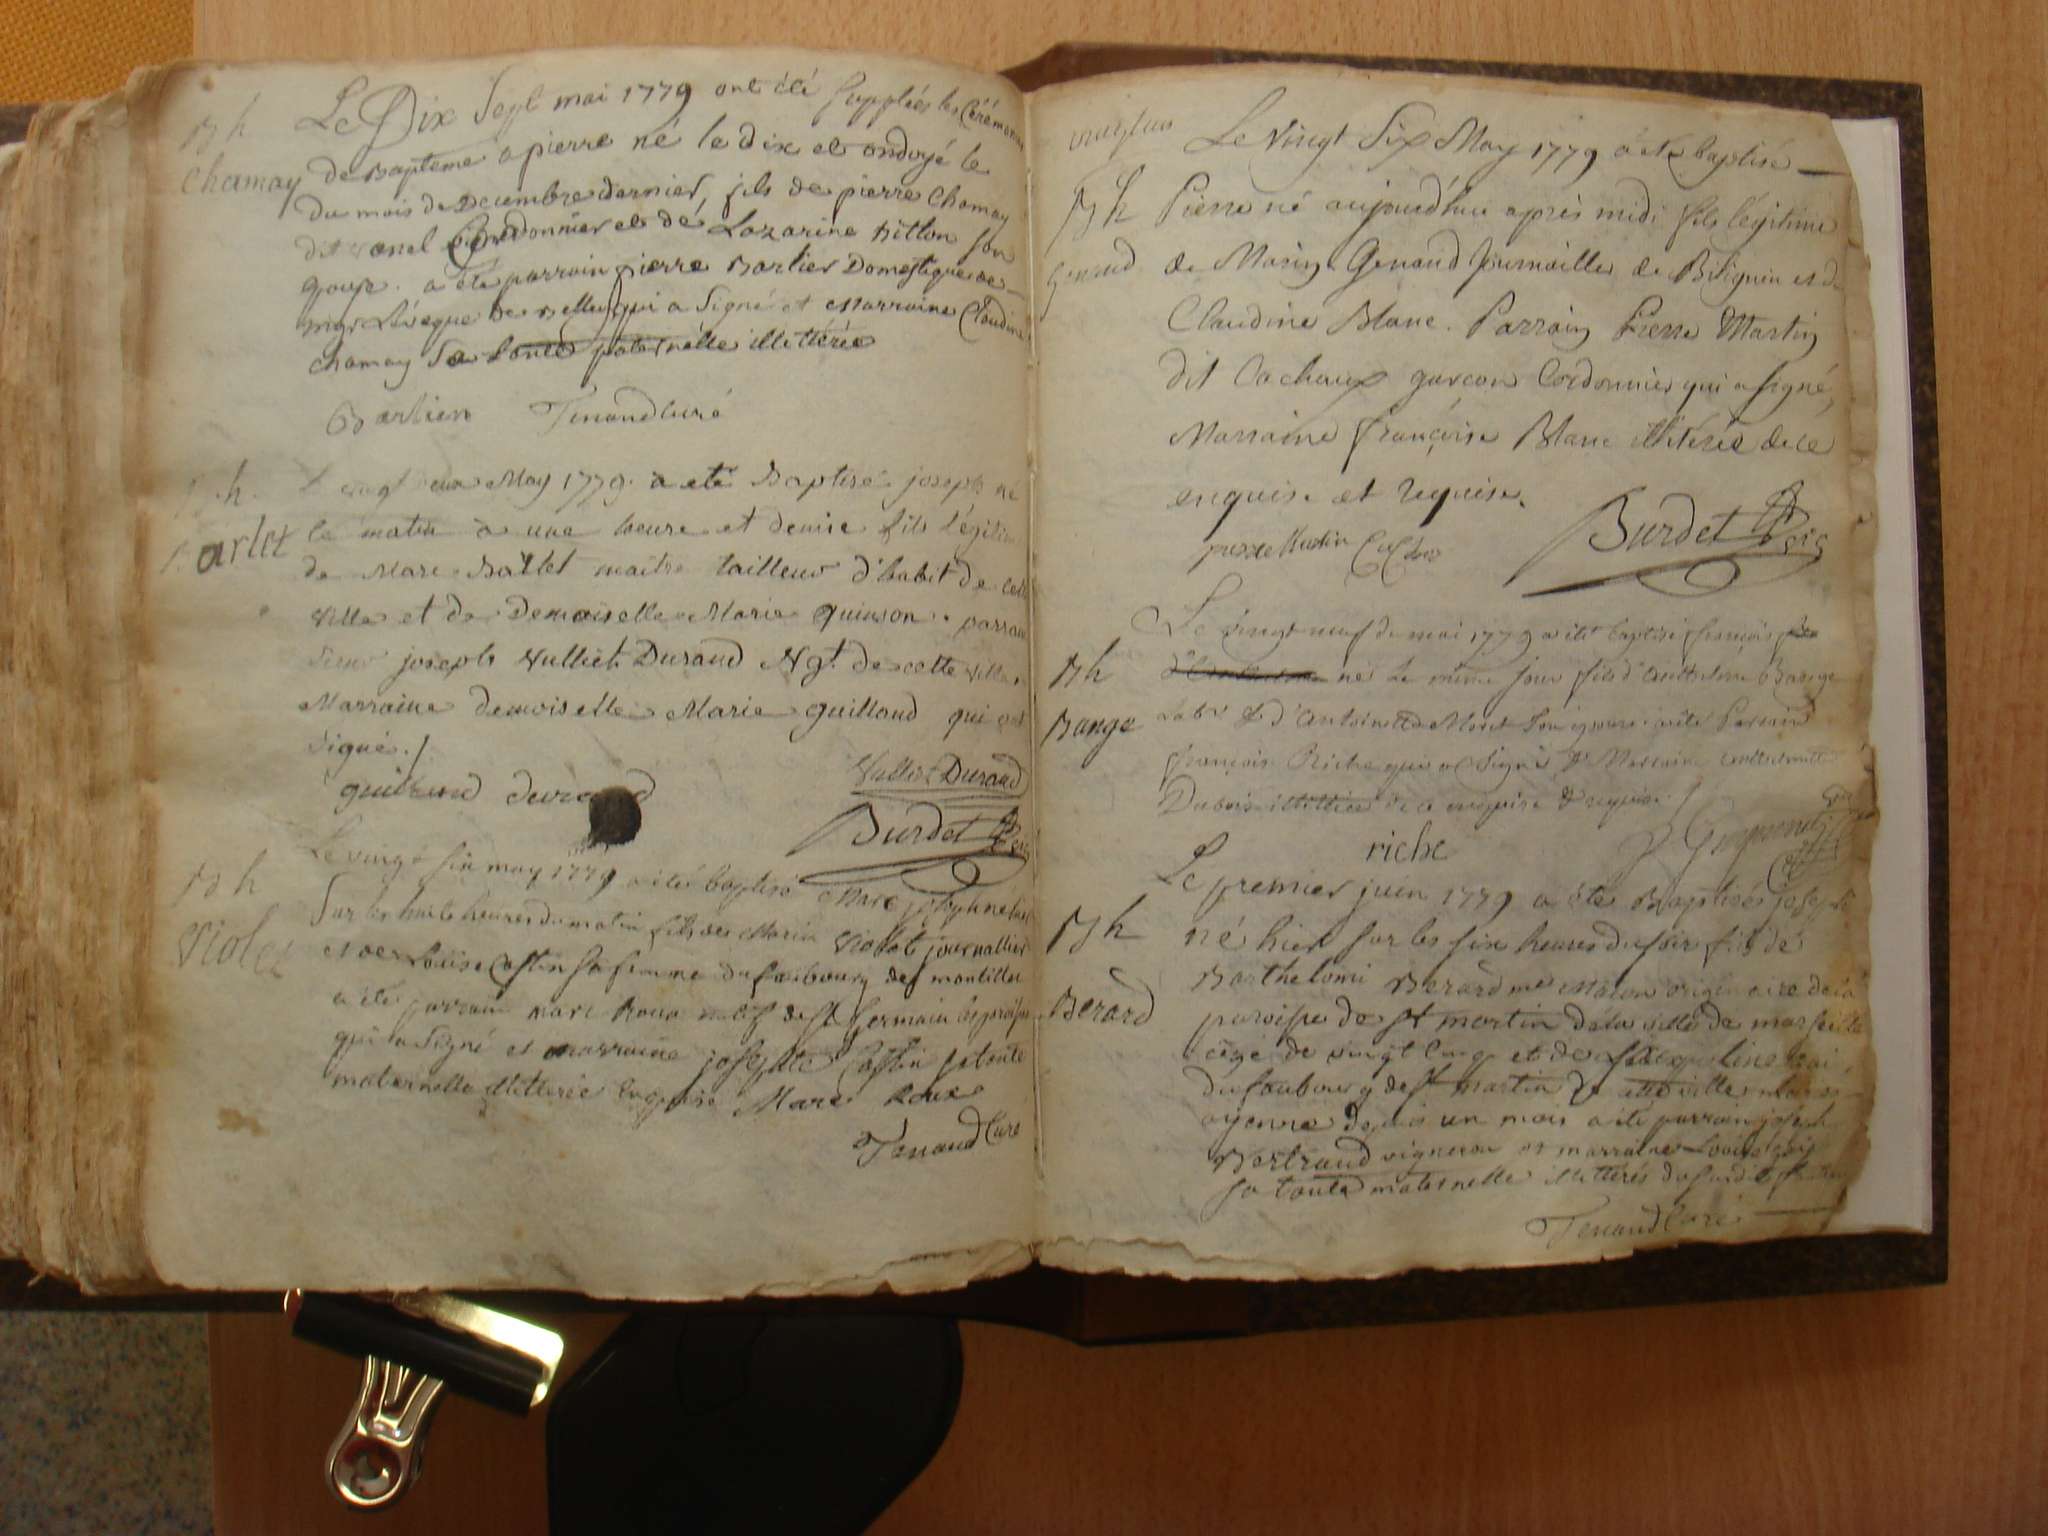 B h
Chamay
Le Dix Sept mai 1779 ont été Supplées les Cérémonies
de Bapteme a pierre né le dix et ondoyé le
du mois de Decembre dernier, fils de pierre Chamay
dit Cordonnier et de Lazarine Billon son
epouse. a été parrain pierre Barlier Domestique de
mgr L'évêque de Belley qui a Signé et Marraine Claudine
chamay Sa tante paternelle illettérée
Barlien Tenand curé
B. h.
Barlet
Le vingt deux May 1779. a eté Baptisé joseph né
le matin à une heure et demie fils légitime
de Marc Barlet maître tailleur d'habit de cette
ville et de Demoiselle Marie quinson. parrain
sieur joseph Vulliet Durand Ngt. de cette ville,
Marraine demoiselle Marie guilland qui ont
signés./
guilland durand Vulliet Durand
Burdet
B h
Violet
Le vingt six may 1779 a été baptisé Marc joseph né hier
Sur les huit heures du matin fils de Marin Violet journallier
et de Louise Costin sa femme du faubourg des montilles
a été parrain Marc Roux natif de St Germain les paroisses
qui a Signé et marraine josephte Costin sa tante
maternelle illetterée Enquise Marc Roux
Tenand Curé
B h
Genand
Le Vingt Six May 1779 a été baptisé
Pierre né aujourd'hui après midi fils légitime
de Marin Genand Journaillier de Bitignin et de
Claudine Blanc. Parrain Pierre Martin
dit Cachoux garçon Cordonnier qui a signé,
Marraine françoise Blanc illitérée de ce
enquise et requise.
pierre Martin
Burdet
B h
Bange
Le vingt neuf de mai 1779 a été baptisé françois
né le même jour fils d'Anthelme Bange
Labr & d'Antoinette Moret son epouse: a été Parrain
françois Riche qui a Signé & Marraine
Dubois illittérée de ce enquise & requise./
riche
B h
Berard
Le premier juin 1779 a été Baptisés joseph
né hier sur les six heures du soir fils de
Barthelomi Berard me Maçon originaire de la
paroisse de St martin de la ville de marseille
agé de vingt cinq et de
du faubourg de St martin de cette ville
depuis un mois a été parrain joseph
Bertrand vigneron et marraine Louise
sa tante maternelle illettérés du susdit
Tenand Curé